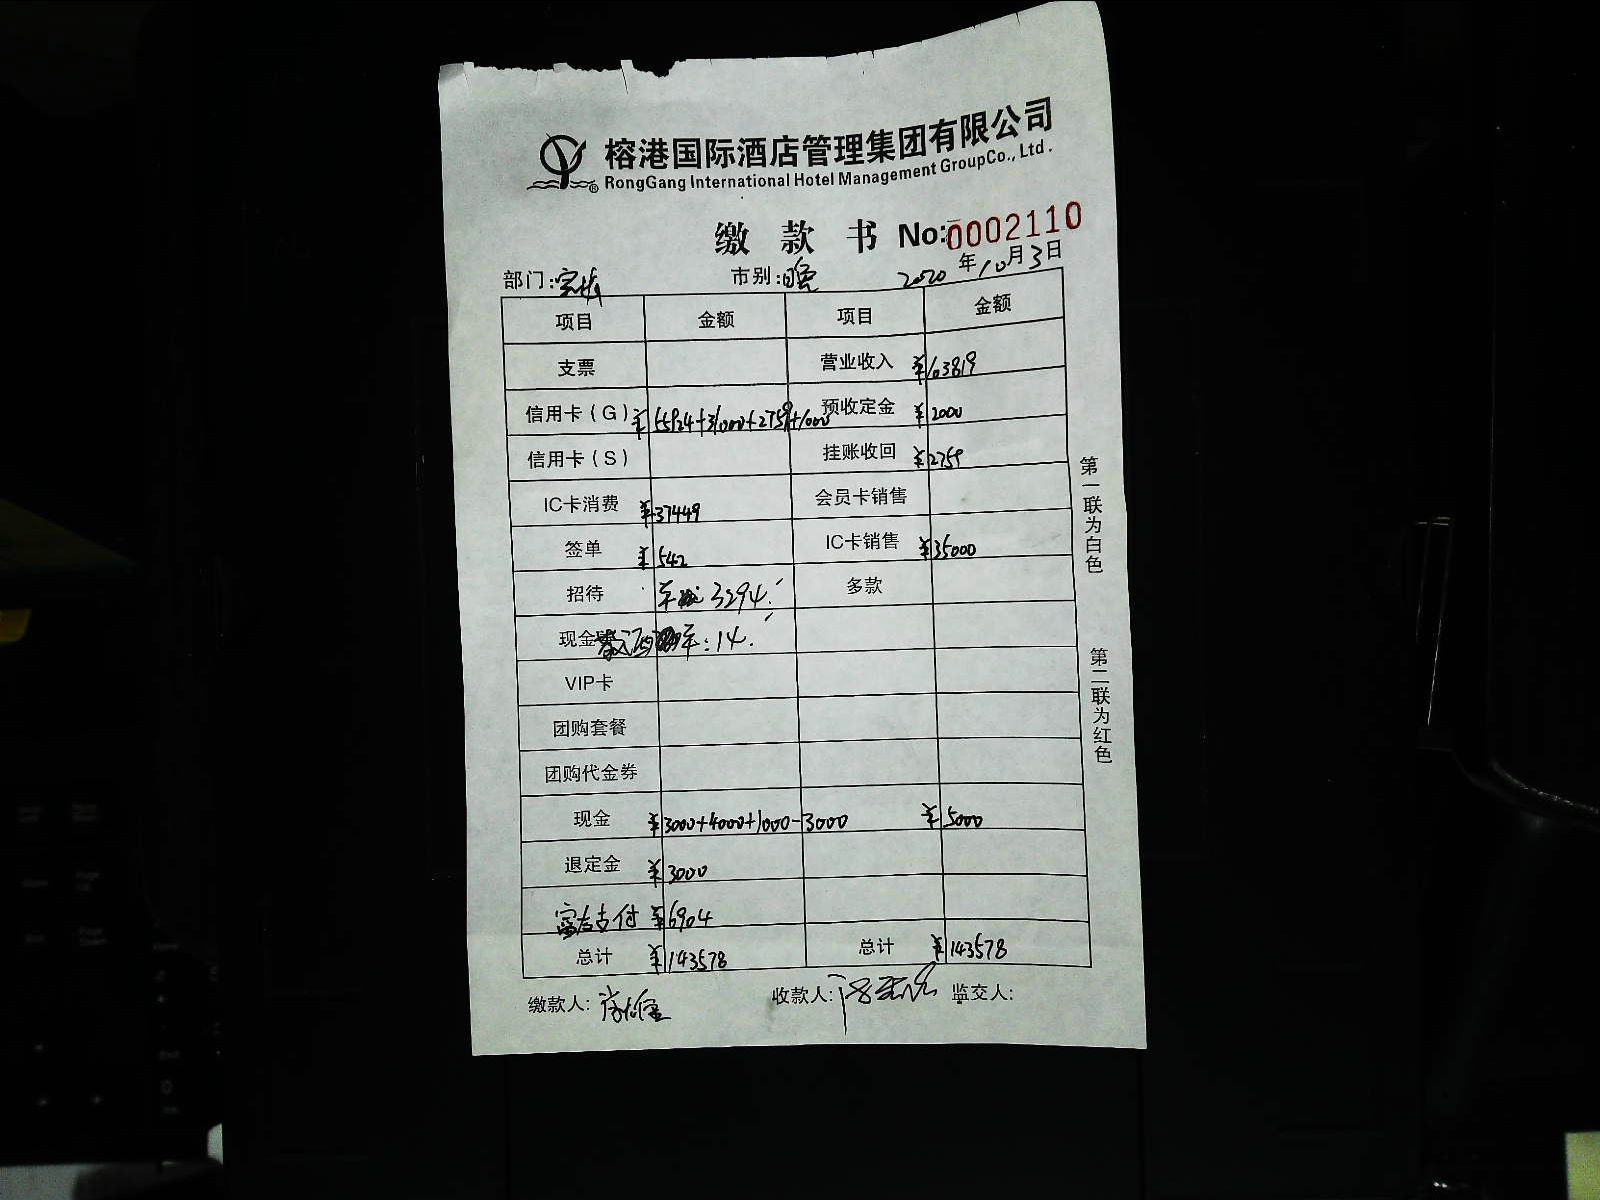 榕港国际酒店管理集团有限公司
RongGang International Hotel Management GroupCo., Ltd.
缴款书 No:0002110
部门: 市别:晚 2020年10月3日
项目 金额 项目 金额
支票 营业收入 ¥103819
信用卡(G) ¥55924+31000+2759+1000 预收定金 ¥2000
信用卡(S) 挂账收回 ¥2759
IC卡消费 ¥37449 会员卡销售
签单 ¥542 IC卡销售 ¥35000
招待 3294. 多款
现金 :14.
VIP卡
团购套餐
团购代金券
现金 ¥3000+4000+1000-3000 ¥5000
退定金 ¥3000
富友支付 ¥6904
总计 ¥143578 总计 ¥143578
缴款人: 收款人: 监交人:
第一联为白色
第二联为红色